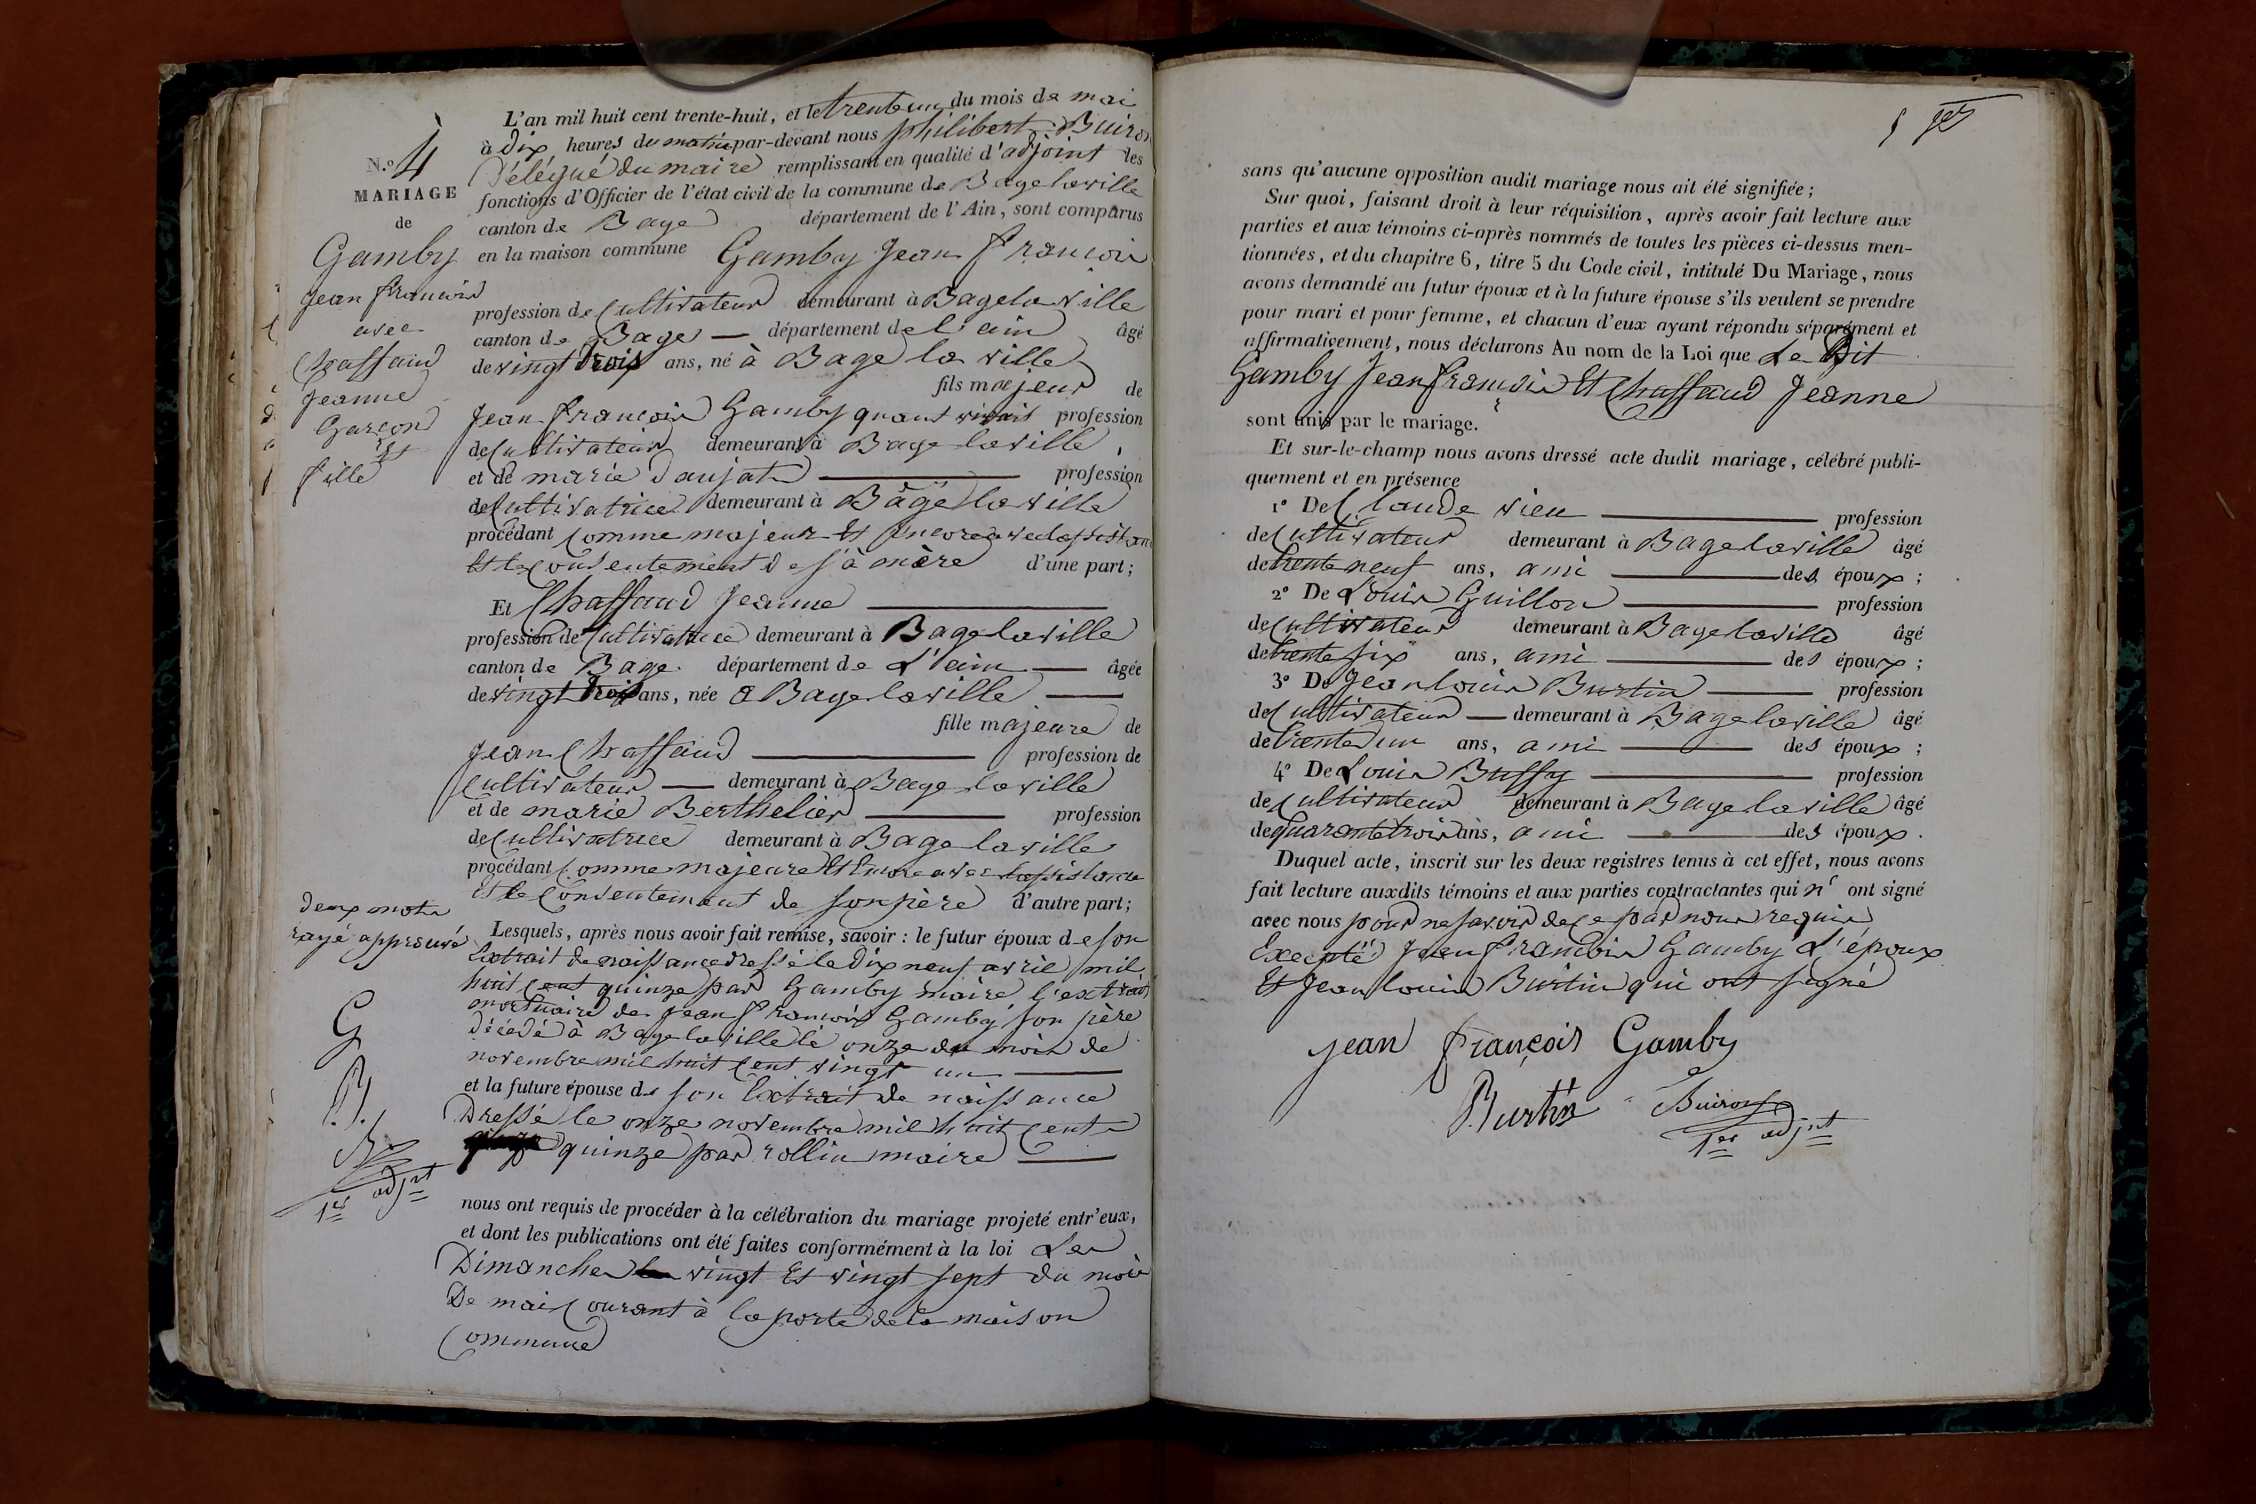 N.o 4
MARIAGE
de
Gamby
Jean francois
avec
Chaffaud
Jeanne
Garçon
Et
fille
L'an mil huit cent trente-huit, et le trente un du mois de mai
à dix heures du matin par-devant nous philibert Buiron
Délégué du maire remplissant en qualité d'adjoint les
fonctions d'Officier de l'état civil de la commune de Bage la ville
canton de Bage département de l'Ain, sont comparus
en la maison commune Gamby Jean francois
profession de Cultivateur demeurant à Bage la ville
canton de Bage département de l'ain âgé
de vingt trois ans, né à Bage la ville
fils majeur de
Jean francois Gamby quant vivait profession
de Cultivateur demeurant à Bage la ville,
et de marie Daujat profession
de Cultivatrice demeurant à Bage la ville
procédant Comme majeur Et Encore avec l'assistance
Et le Consentement de sa mère d'une part;
Et Chaffaud Jeanne
profession de Cultivatrice demeurant à Bage la ville
canton de Bage département de L'ain âgée
de vingt trois ans, née a Bage la ville
fille majeure de
Jean Chaffaud profession de
Cultivateur demeurant à Bage la ville
et de marie Berthelier profession
de Cultivatrice demeurant à Bage la ville
procédant Comme majeure Et Encore avec l'assistance
Et le Consentement de son père d'autre part;
deux mots
rayé approuvé
G
B.
1er adjnt
Lesquels, après nous avoir fait remise, savoir : le futur époux de son
Extrait de naissance dressé le dix neuf avril mil
huit cent quinze par Gamby maire, l'extrait
mortuaire de Jean francois Gamby son père
décédé à Bage la ville le onze du mois de
novembre mil huit cent vingt un
et la future épouse de son Extrait de naissance
Dressé le onze novembre mil huit cent
quinze par rollin maire
nous ont requis de procéder à la célébration du mariage projeté entr'eux,
et dont les publications ont été faites conformément à la loi Les
Dimanches vingt Et vingt sept du mois
De mai Courant à la porte de la maison
Commune
sans qu'aucune opposition audit mariage nous ait été signifiée;
Sur quoi, faisant droit à leur réquisition, après avoir fait lecture aux
parties et aux témoins ci-après nommés de toutes les pièces ci-dessus men-
tionnées, et du chapitre 6, titre 5 du Code civil, intitulé Du Mariage, nous
avons demandé au futur époux et à la future épouse s'ils veulent se prendre
pour mari et pour femme, et chacun d'eux ayant répondu séparément et
affirmativement, nous déclarons Au nom de la Loi que Le Dit
Gamby Jean françois Et Chaffaud Jeanne
sont unis par le mariage.
Et sur-le-champ nous avons dressé acte dudit mariage, célébré publi-
quement et en présence
1o De Claude vieu profession
de Cultivateur demeurant à Bage la ville âgé
de trente neuf ans, ami des époux;
2o De Louis Guillon profession
de Cultivateur demeurant à Bage la ville âgé
de trente six ans, ami des époux;
3o De Jean louis Burtin profession
de Cultivateur demeurant à Bage la ville âgé
de trente un ans, ami des époux;
4o De Louis Buffy profession
de Cultivateur demeurant à Bage la ville âgé
de quarante trois ans, ami des époux.
Duquel acte, inscrit sur les deux registres tenus à cet effet, nous avons
fait lecture auxdits témoins et aux parties contractantes qui n' ont signé
avec nous pour ne savoir de ce par nous requis
Excepté Jean francois Gamby L'époux
Et Jean louis Burtin qui ont signé
jean françois Gamby
Burtin Buiron
1er adjnt